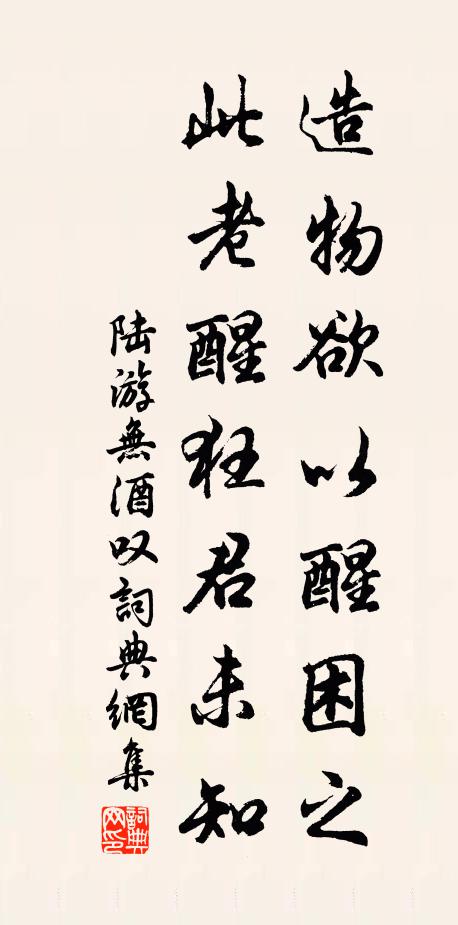 造物欲以醒困之
此老醒狂君未知
陆游無酒叹詞典網集
詞典網印